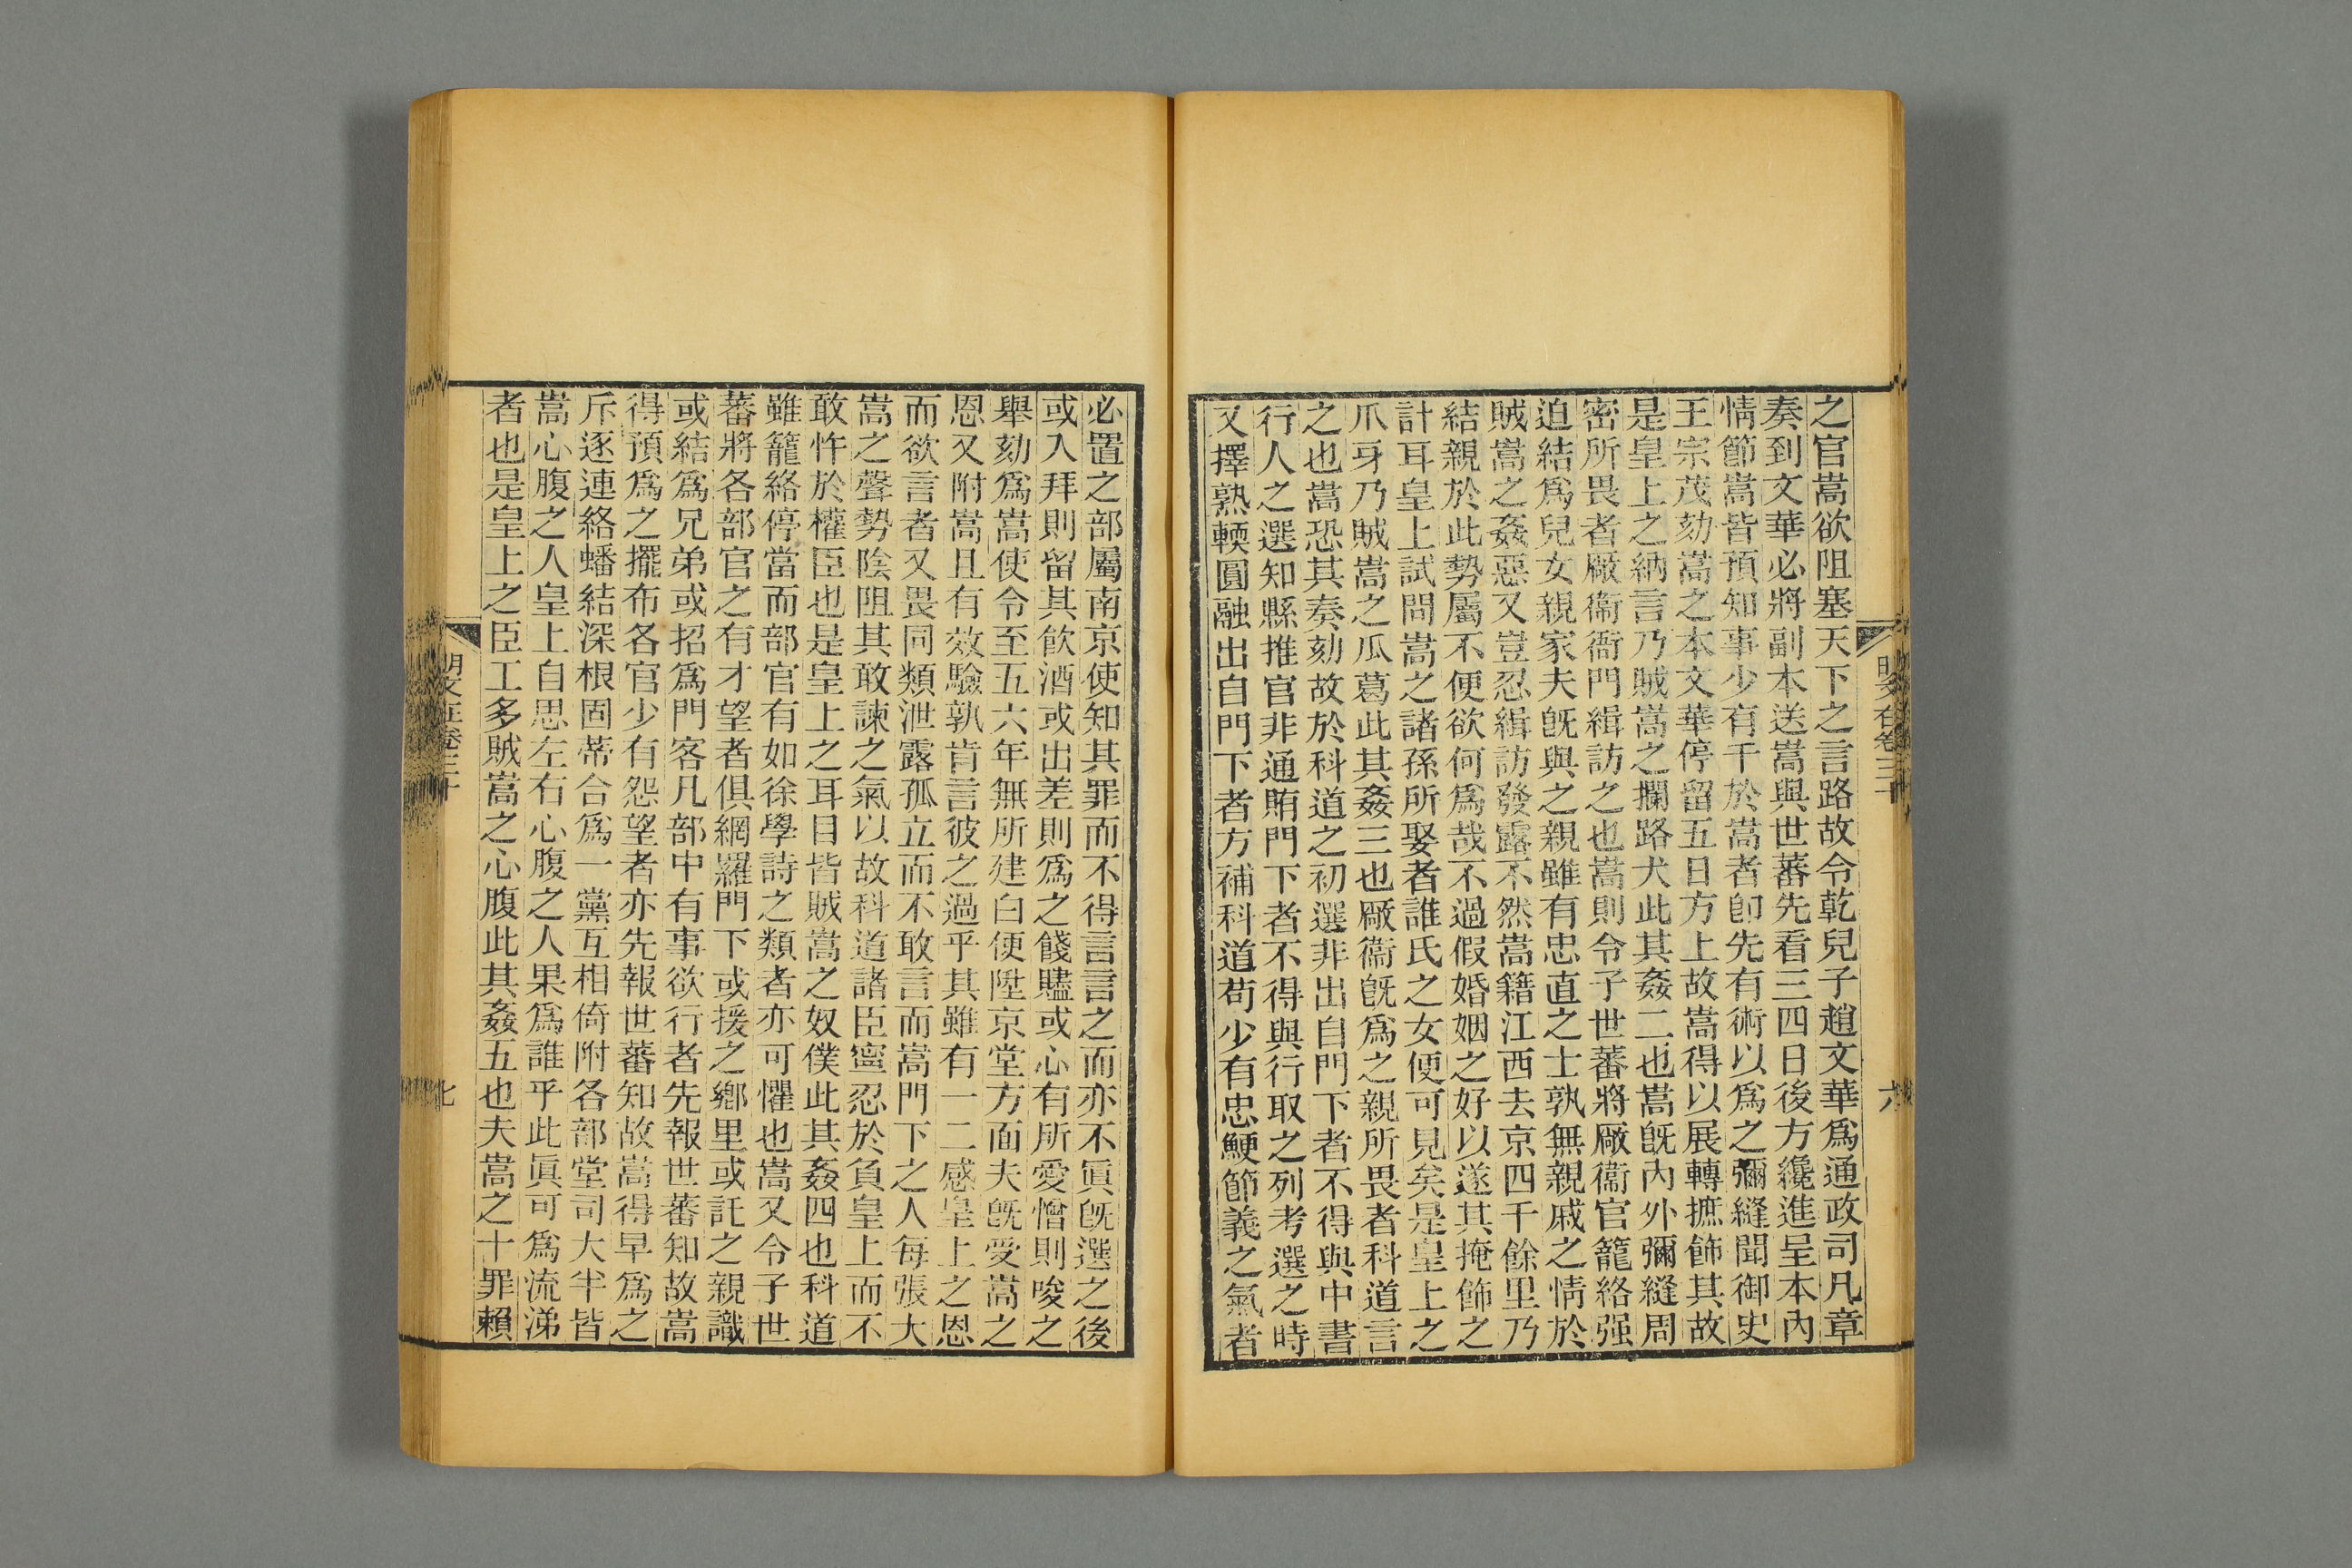 之官嵩欲阻塞天下之言路故令乾兒子趙文華爲通政司凡章
奏到文華必將副本送嵩與世蕃先看三四日後方纔進呈本內
情節嵩皆預知事少有干於嵩者卽先有術以爲之彌縫聞御史
王宗茂劾嵩之本文華停留五日方上故嵩得以展轉摭飾其故
是皇上之納言乃賊嵩之攔路犬此其姦二也嵩旣內外彌縫周
密所畏者廠衞衙門緝訪之也嵩則令子世蕃將廠衞官籠絡强
迫結爲兒女親家夫旣與之親雖有忠直之士孰無親戚之情於
賊嵩之姦惡又豈忍緝訪發露不然嵩籍江西去京四千餘里乃
結親於此勢屬不便欲何爲哉不過假婚姻之好以遂其掩飾之
計耳皇上試問嵩之諸孫所娶者誰氏之女便可見矣是皇上之
爪牙乃賊嵩之瓜葛此其姦三也廠衞旣爲之親所畏者科道言
之也嵩恐其奏劾故於科道之初選非出自門下者不得與中書
行人之選知縣推官非通賄門下者不得與行取之列考選之時
又擇熟輭圓融出自門下者方補科道苟少有忠鯁節義之氣者
明文在卷三十
六
必置之部屬南京使知其罪而不得言言之而亦不眞旣選之後
或入拜則留其飮酒或出差則爲之餞贐或心有所愛憎則唆之
舉劾爲嵩使令至五六年無所建白便陞京堂方面夫旣愛嵩之
恩又附嵩且有效驗孰肯言彼之過乎其雖有一二感皇上之恩
而欲言者又畏同類泄露孤立而不敢言而嵩門下之人每張大
嵩之聲勢陰阻其敢諫之氣以故科道諸臣寧忍於負皇上而不
敢忤於權臣也是皇上之耳目皆賊嵩之奴僕此其姦四也科道
雖籠絡停當而部官有如徐學詩之類者亦可懼也嵩又令子世
蕃將各部官之有才望者俱網羅門下或援之鄕里或託之親識
或結爲兄弟或招爲門客凡部中有事欲行者先報世蕃知故嵩
得預爲之擺布各官少有怨望者亦先報世蕃知故嵩得早爲之
斥逐連絡蟠結深根固蒂合爲一黨互相倚附各部堂司大半皆
嵩心腹之人皇上自思左右心腹之人果爲誰乎此眞可爲流涕
者也是皇上之臣工多賊嵩之心腹此其姦五也夫嵩之十罪賴
明文在卷三十
七